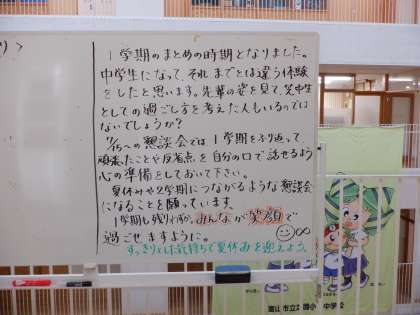 1学期のまとめの時期となりました。
中学生になって、それまでとは違う体験
をしたと思います。先輩の姿を見て、芝中生
としての過ごし方を考えた人もいるのでは
ないでしょうか？
7/15〜の懇談会では1学期をふり返って
頑張ったことや反省点を自分の口で話せるよう
心の準備をしておいて下さい。
夏休みや2学期につながるような懇談会
になることを願っています。
1学期も残りわずか。みんなが笑顔で
過ごせますように。
すっきりした気持ちで夏休みを迎えよう。
富山市立